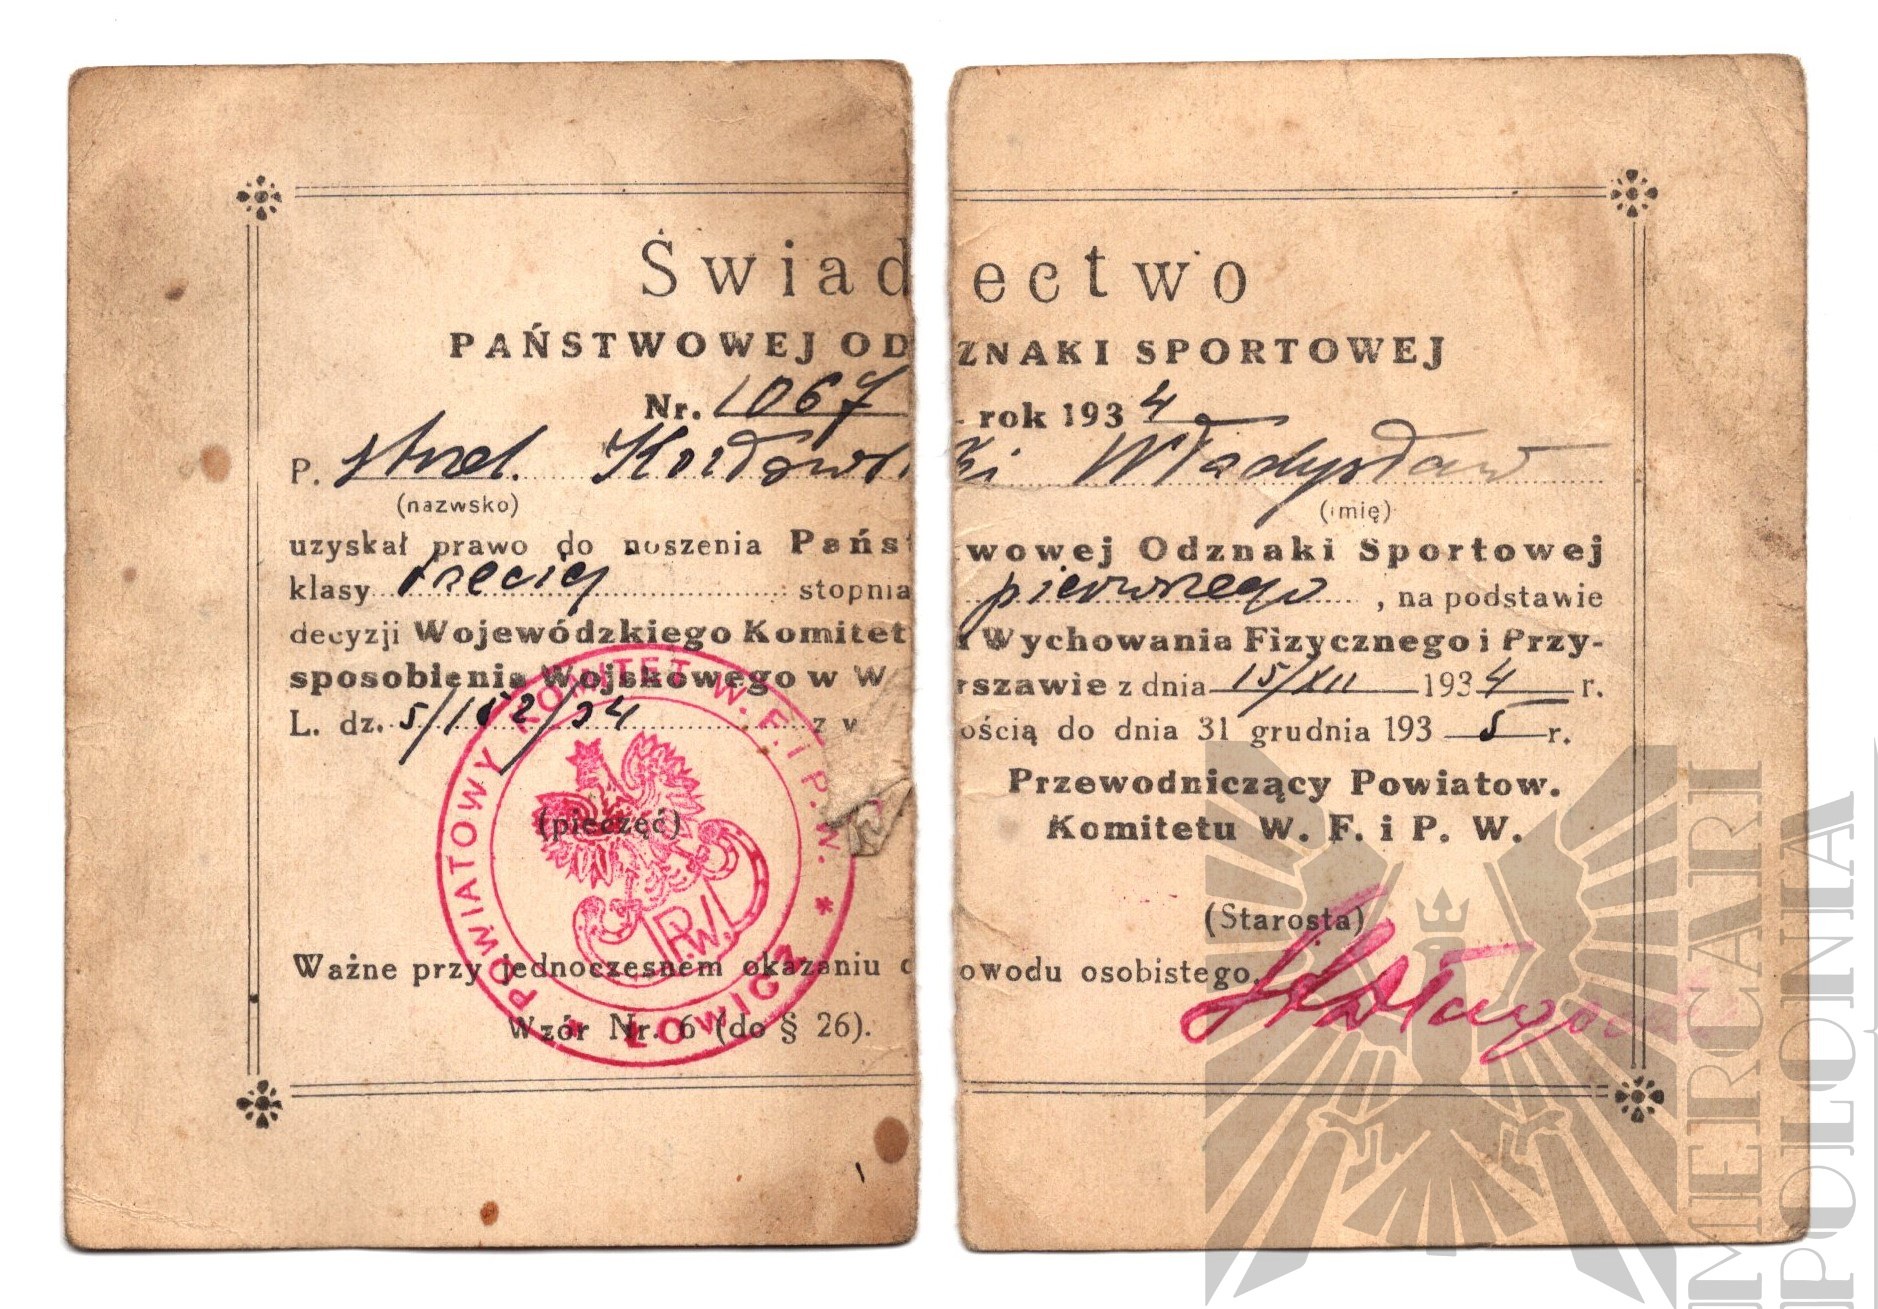 Świad ectwo
PAŃSTWOWEJ OD ZNAKI SPORTOWEJ
Nr. 1067 - rok 1934
P. strzel. Kozłowski Władysław
(nazwsko) (imię)
uzyskał prawo do noszenia Państ wowej Odznaki Sportowej
klasy trzeciej stopnia pierwszego, na podstawie
decyzji Wojewódzkiego Komitet u Wychowania Fizycznego i Przy-
sposobienia Wojskowego w W rszawie z dnia 15/XII 1934 r.
L. dz. 5/182/34 z w ością do dnia 31 grudnia 1935 r.
Przewodniczący Powiatow.
Komitetu W. F. i P. W.
(pieczęć)
(Starosta)
POWIATOWY KOMITET W. F. i P. W. * ŁOWICZ *
P.W.
Ważne przy jednoczesnem okazaniu d owodu osobistego.
Wzór Nr. 6 (do § 26).
MERCARI
POLONIA